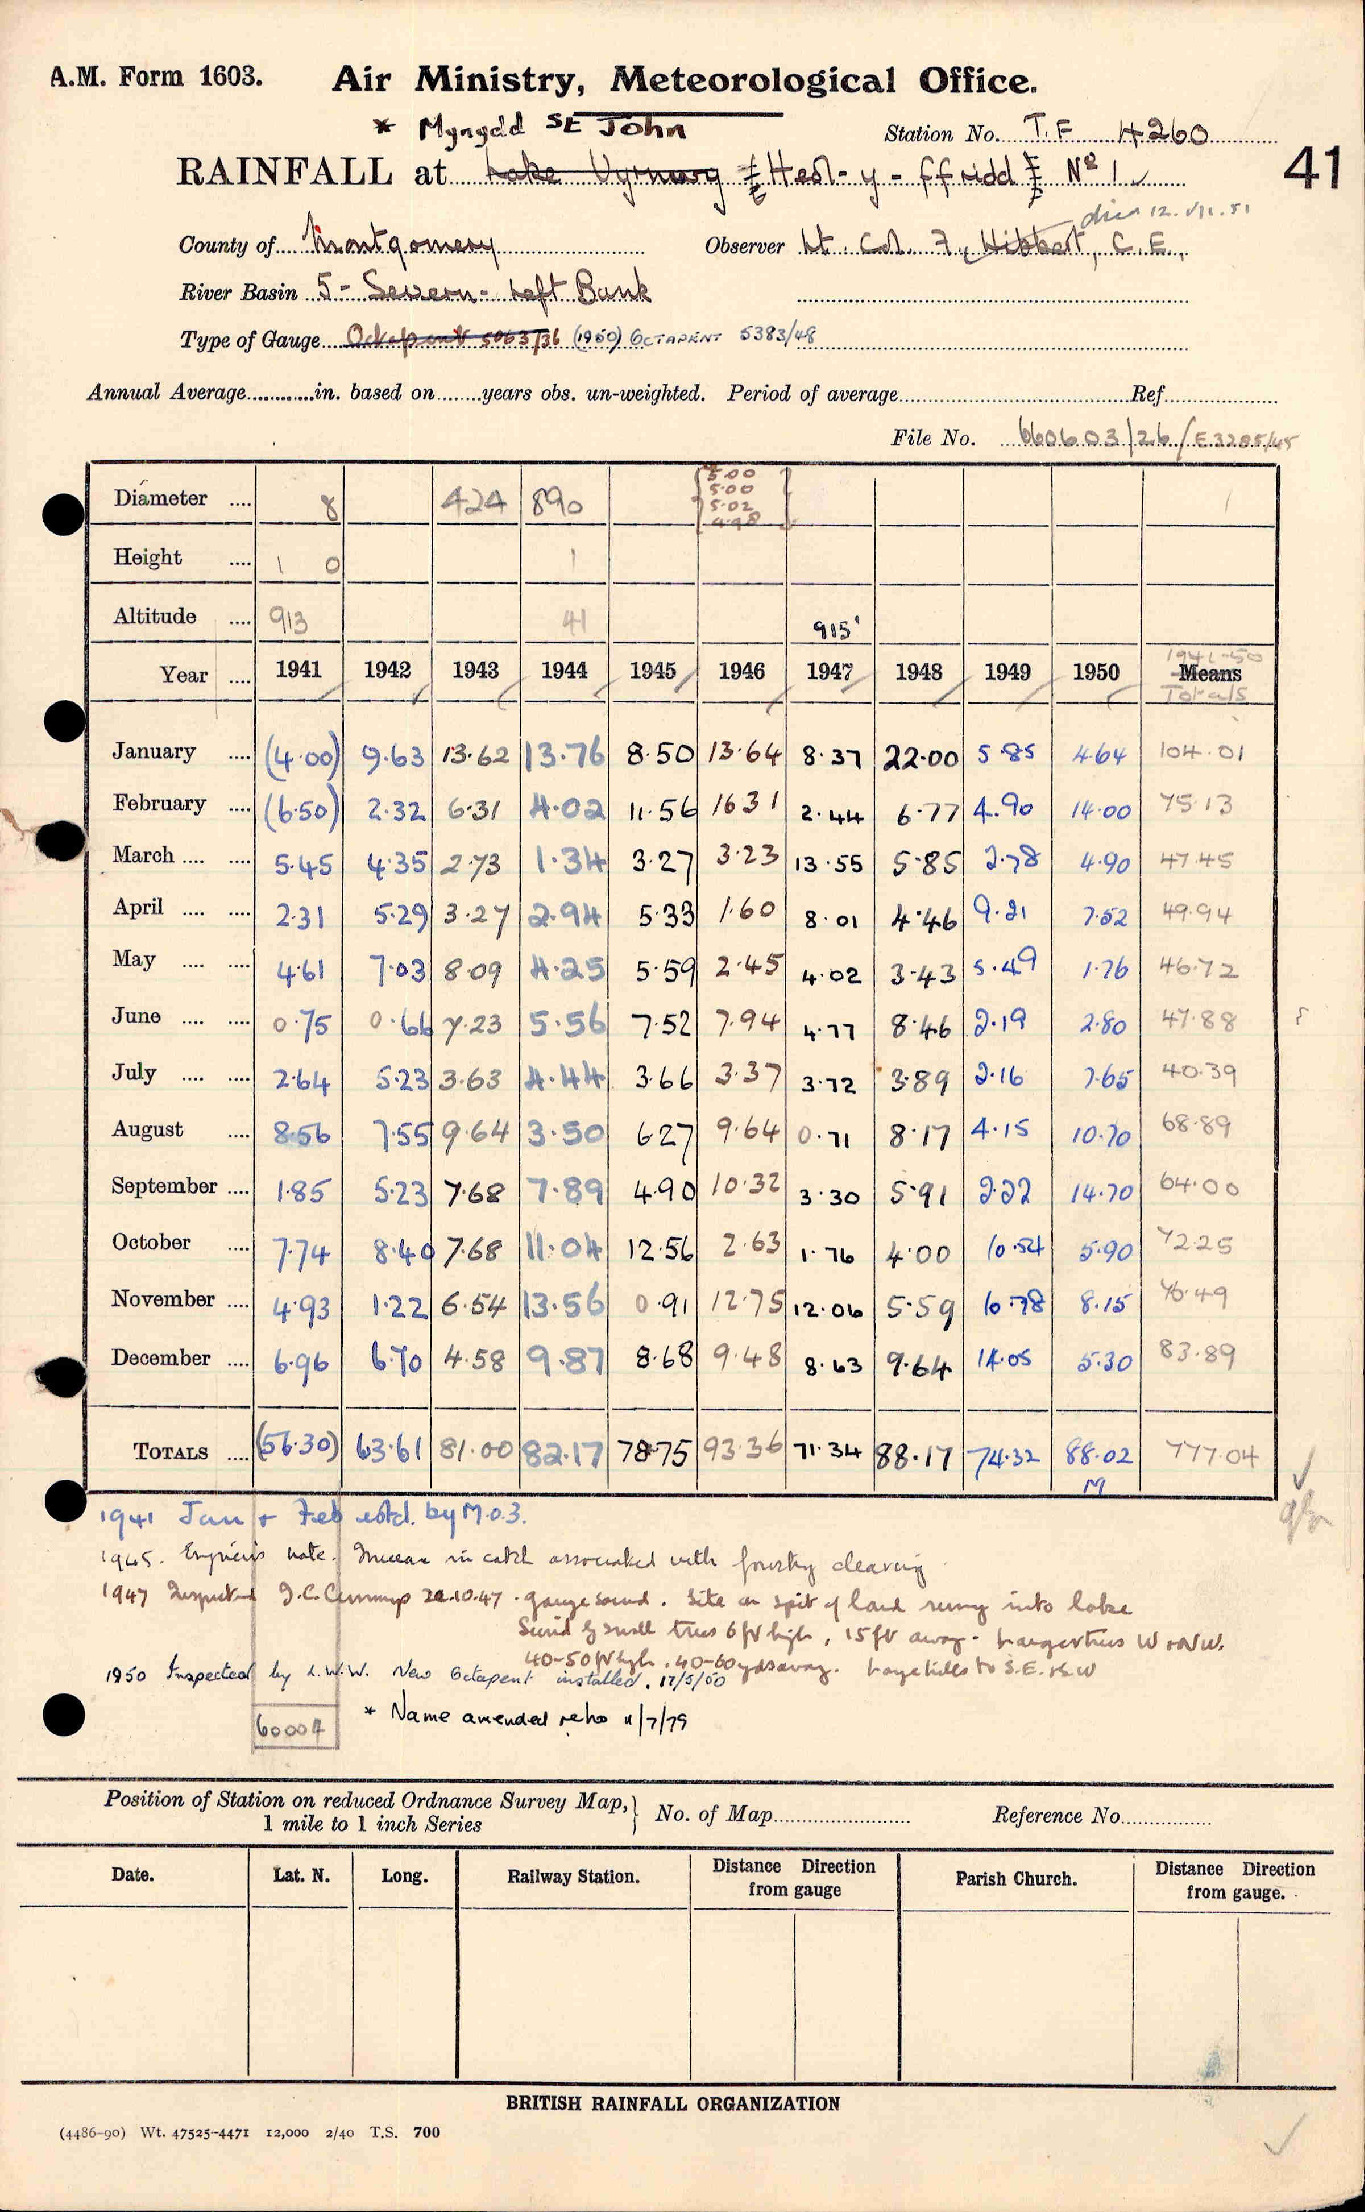 A.M. Form 1603. Air Ministry, Meteorological Office.
* Mynydd St John
Station No. T.F 4260
41
RAINFALL at Lake Vyrnwy Heol-y-ffridd No 1
12.VII.51
County of Montgomery Observer Lt. Col. F. Hibbert, C.E.,
River Basin 5 - Severn - Left Bank
Type of Gauge Octapent 5063/36 (1950) OCTAPENT 5383/48
Annual Average in. based on years obs. un-weighted. Period of average Ref.
File No. 660603/26/E3285/45
Diameter 8 424 890 5.00
5.00
5.02
4.98
Height 1 0 1
Altitude 913 41 915'
Year 1941 1942 1943 1944 1945 1946 1947 1948 1949 1950 1941-50 Means Totals
January (4.00) 9.63 13.62 13.76 8.50 13.64 8.37 22.00 5.85 4.64 104.01
February (6.50) 2.32 6.31 4.02 11.56 16.31 2.44 6.77 4.90 14.00 75.13
March 5.45 4.35 2.73 1.34 3.27 3.23 13.55 5.85 2.78 4.90 47.45
April 2.31 5.29 3.27 2.94 5.33 1.60 8.01 4.46 9.21 7.52 49.94
May 4.61 7.03 8.09 4.25 5.59 2.45 4.02 3.43 5.49 1.76 46.72
June 0.75 0.66 7.23 5.56 7.52 7.94 4.77 8.46 2.19 2.80 47.88
July 2.64 5.23 3.63 4.44 3.66 3.37 3.72 3.89 2.16 7.65 40.39
August 8.56 7.55 9.64 3.50 6.27 9.64 0.71 8.17 4.15 10.70 68.89
September 1.85 5.23 7.68 7.89 4.90 10.32 3.30 5.91 2.22 14.70 64.00
October 7.74 8.40 7.68 11.04 12.56 2.63 1.76 4.00 10.54 5.90 72.25
November 4.93 1.22 6.54 13.56 0.91 12.75 12.06 5.59 10.78 8.15 76.49
December 6.96 6.70 4.58 9.87 8.68 9.48 8.63 9.64 14.05 5.30 83.89
TOTALS (56.30) 63.61 81.00 82.17 78.75 93.36 71.34 88.17 74.32 88.02 777.04
M
1941 Jan + Feb estd. by M.O.3.
1945. Engineer's note. Increase in catch associated with forestry clearing
1947 Inspected J.C. Cummings 22.10.47. gauge sound. Site on spit of land running into lake
Surrd by small trees 6 ft high, 15 ft away. Larger trees W + NW.
40-50 ft high. 40-60 yds away. Large hills to S.E. + S.W
1950 Inspected by L.W.W. New Octapent installed. 17/5/50
60004
* Name amended 11/7/79
Position of Station on reduced Ordnance Survey Map, 1 mile to 1 inch Series No. of Map Reference No.
Date. Lat. N. Long. Railway Station. Distance Direction from gauge Parish Church. Distance Direction from gauge.
BRITISH RAINFALL ORGANIZATION
(4486-90) Wt. 47525-4471 12,000 2/40 T.S. 700